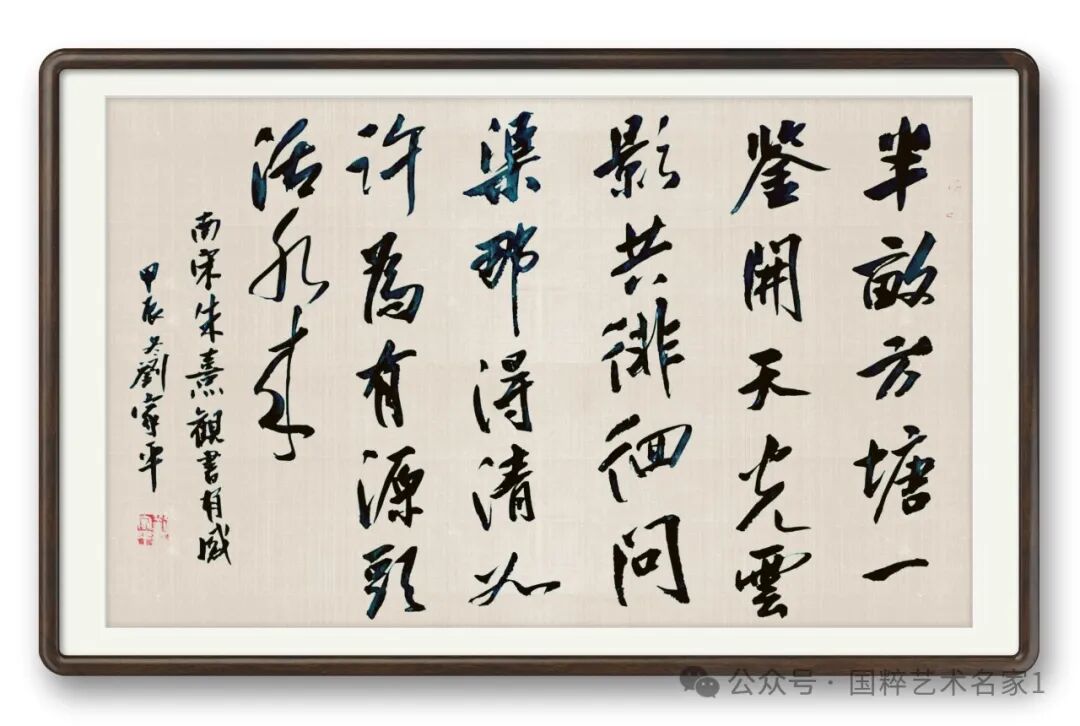 半畝方塘一
鑒開天光雲
影共徘徊問
渠那得清如
許為有源頭
活水來
南宋朱熹觀書有感
甲辰冬劉家平
公众号 · 国粹艺术名家1